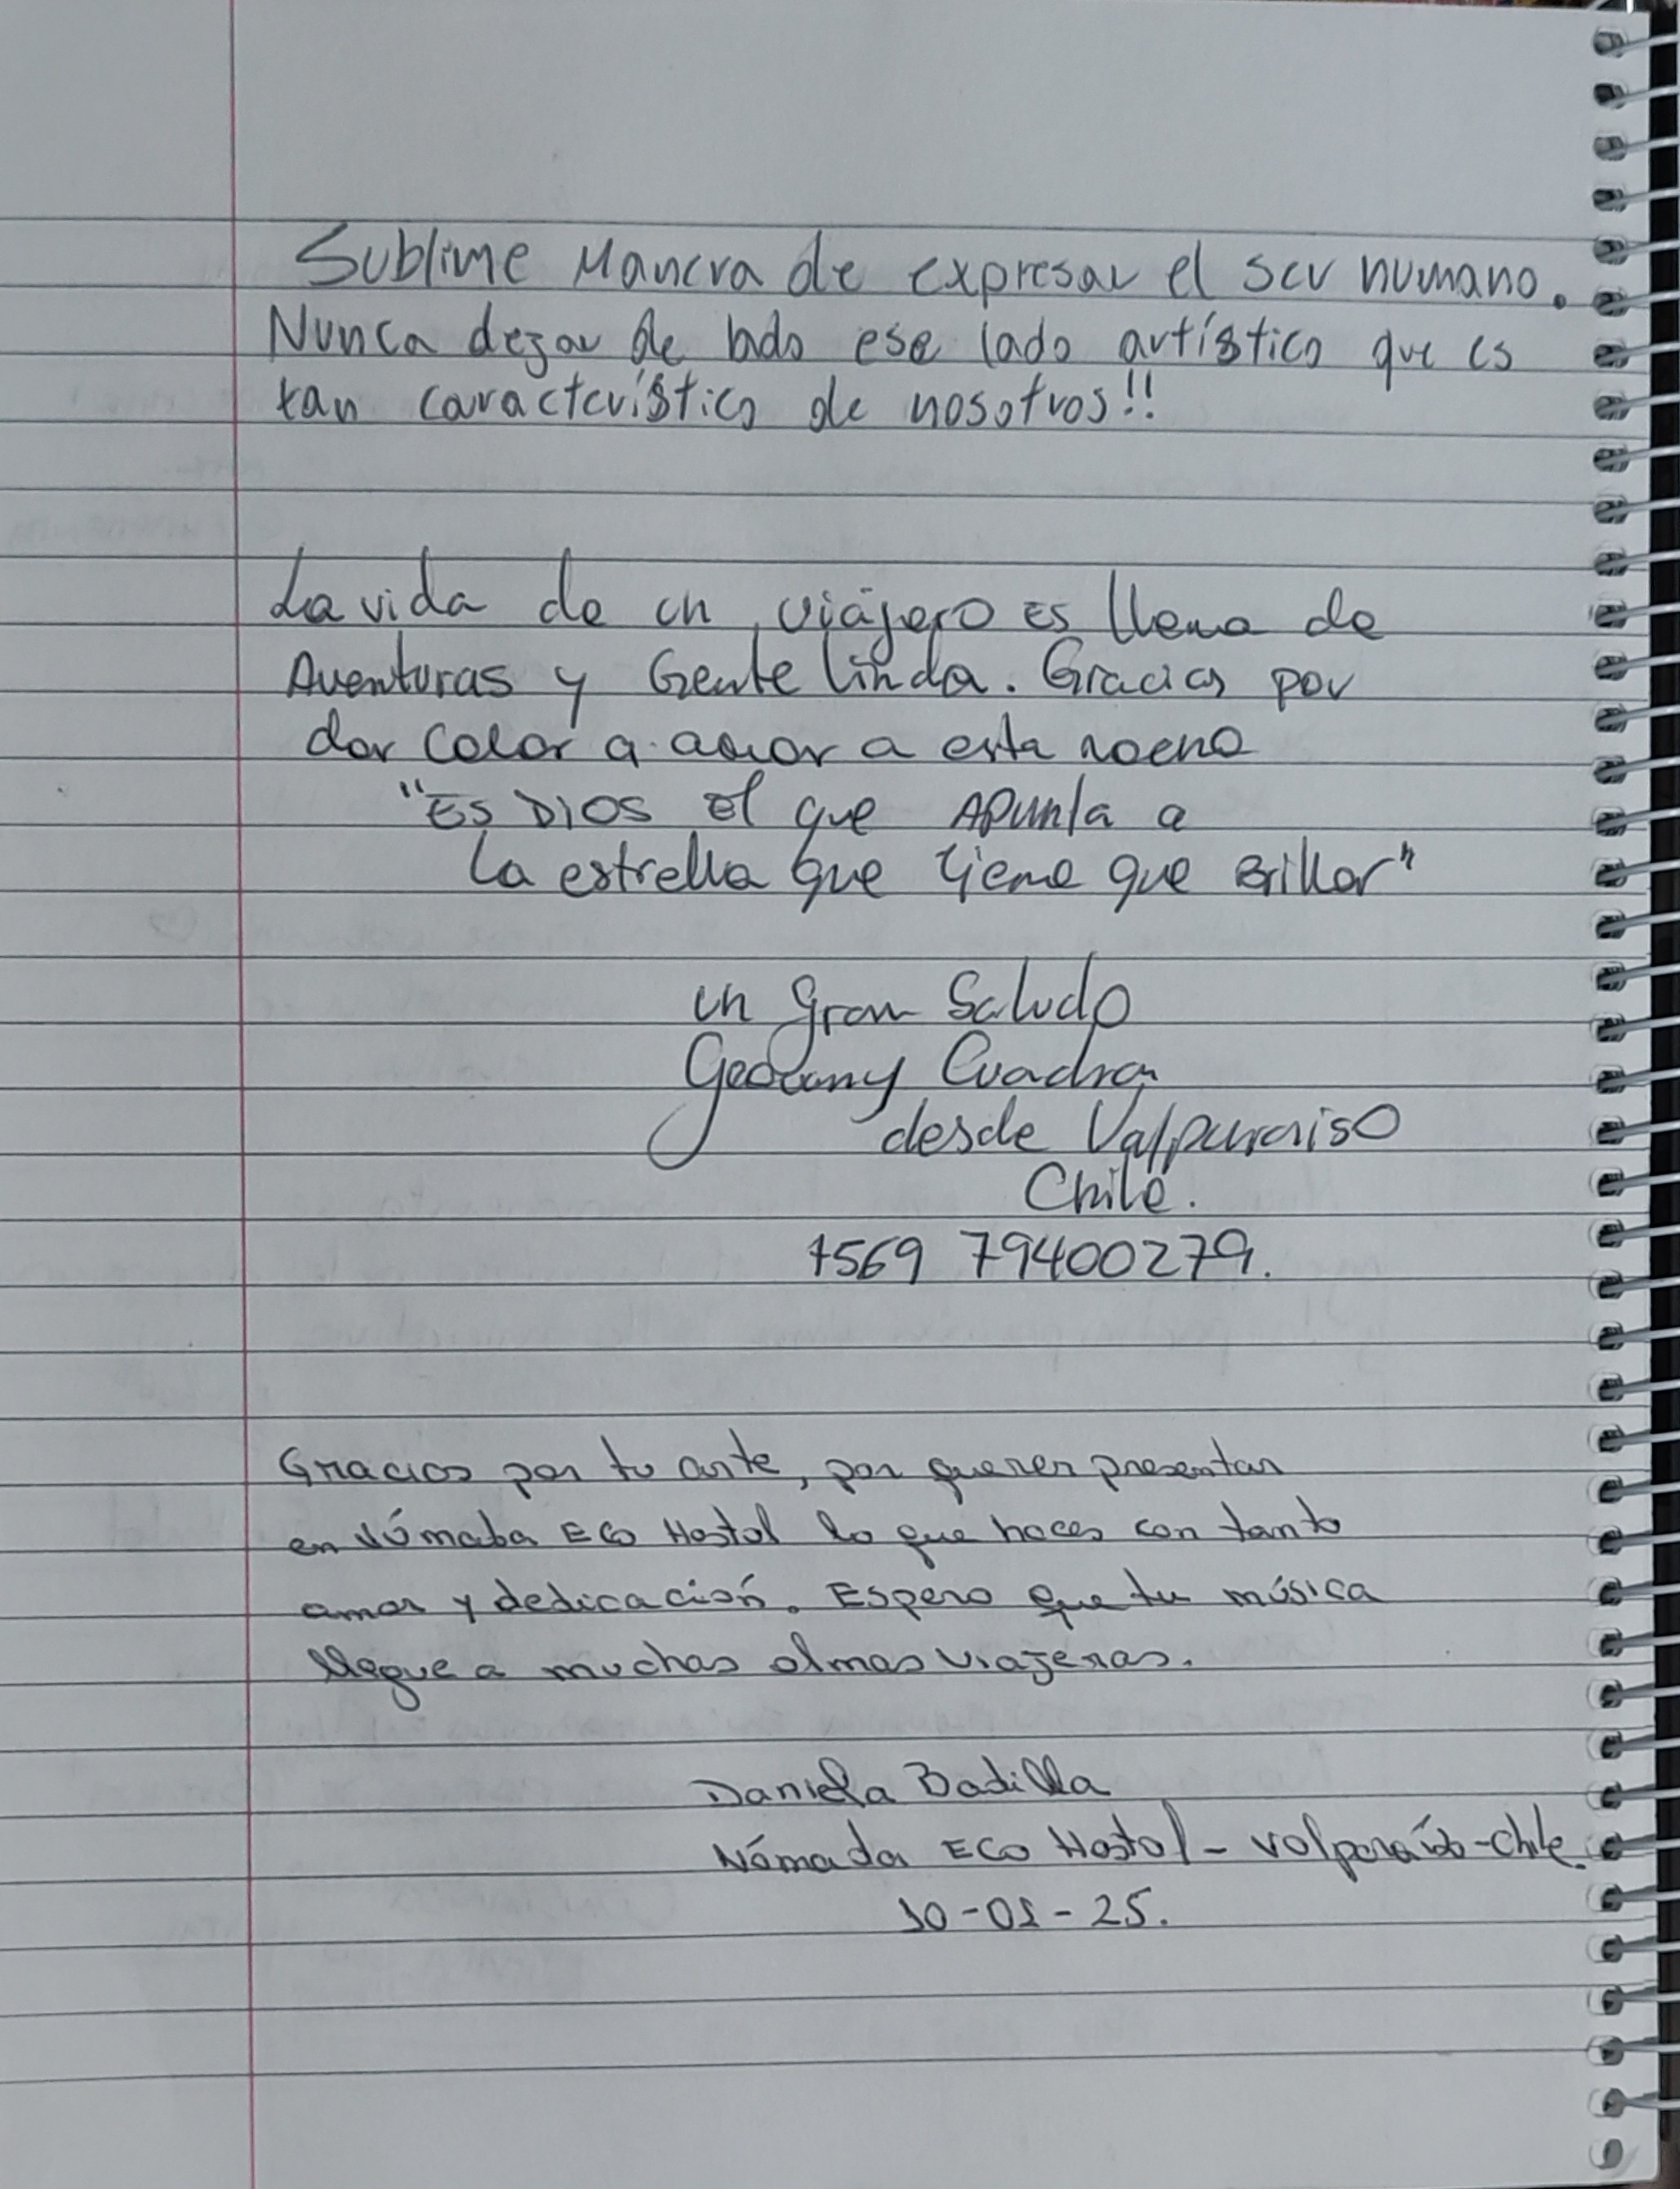 Sublime Manera de expresar el ser humano.
Nunca dejar de lado ese lado artístico que es
tan característico de nosotros!!
La vida de un viajero es llena de
Aventuras y Gente linda. Gracias por
dar color a amor a esta noche
"Es DIOS el que Apunta a
la estrella que tiene que Brillar"
un gran Saludo
Geovany Cuadra
desde Valparaiso
Chile.
+569 79400279.
Gracias por tu arte, por querer presentar
en Nómada Eco Hostal lo que haces con tanto
amor y dedicación. Espero que tu música
llegue a muchas almas viajeras.
Daniela Badilla
Nómada Eco Hostal - Valparaíso-Chile.
10-01-25.